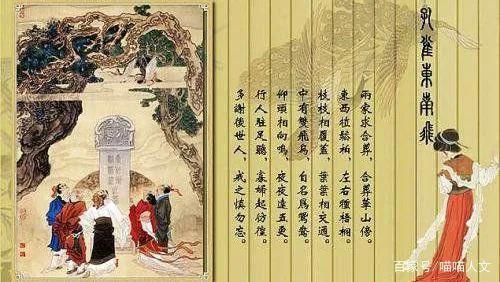 孔雀東南飛
兩家求合葬，合葬華山傍。
東西植鬆柏，左右種梧桐。
枝枝相覆蓋，葉葉相交通。
中有雙飛鳥，自名爲鴛鴦。
仰頭相向鳴，夜夜達五更。
行人駐足聽，寡婦起彷徨。
多謝後世人，戒之慎勿忘。
百家号/喵喵人文